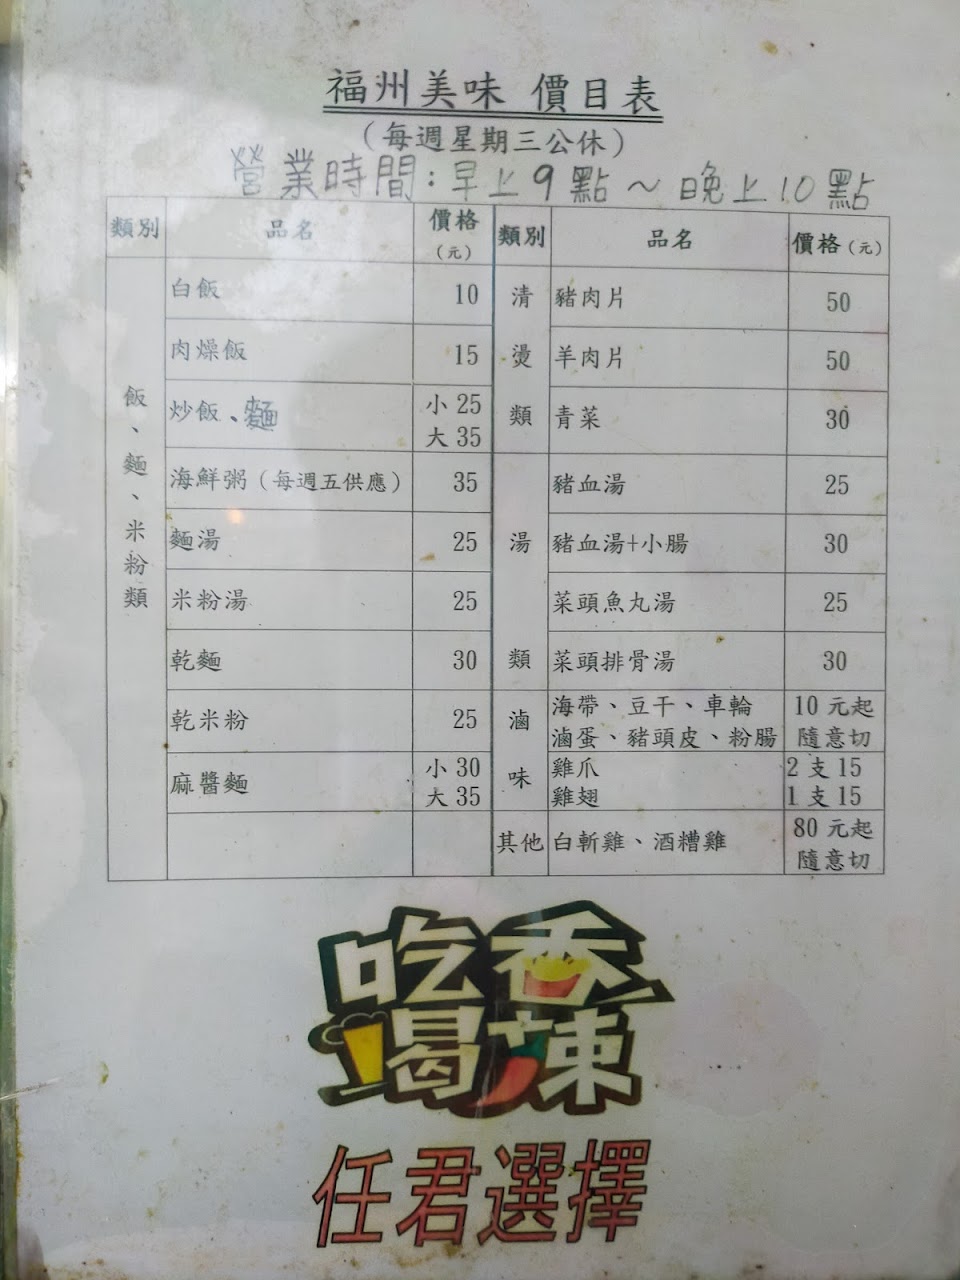 福州美味 價目表
(每週星期三公休)
營業時間:早上9點~晚上10點
類別 品名 價格(元) 類別 品名 價格(元)
飯、麵、米粉類
白飯 10
肉燥飯 15
炒飯、麵 小 25
大 35
海鮮粥(每週五供應) 35
麵湯 25
米粉湯 25
乾麵 30
乾米粉 25
麻醬麵 小 30
大 35
清燙類
豬肉片 50
羊肉片 50
青菜 30
湯類
豬血湯 25
豬血湯+小腸 30
菜頭魚丸湯 25
菜頭排骨湯 30
滷味
海帶、豆干、車輪 10 元起
滷蛋、豬頭皮、粉腸 隨意切
雞爪 2 支 15
雞翅 1 支 15
其他 白斬雞、酒糟雞 80 元起
隨意切
吃香
喝辣
任君選擇